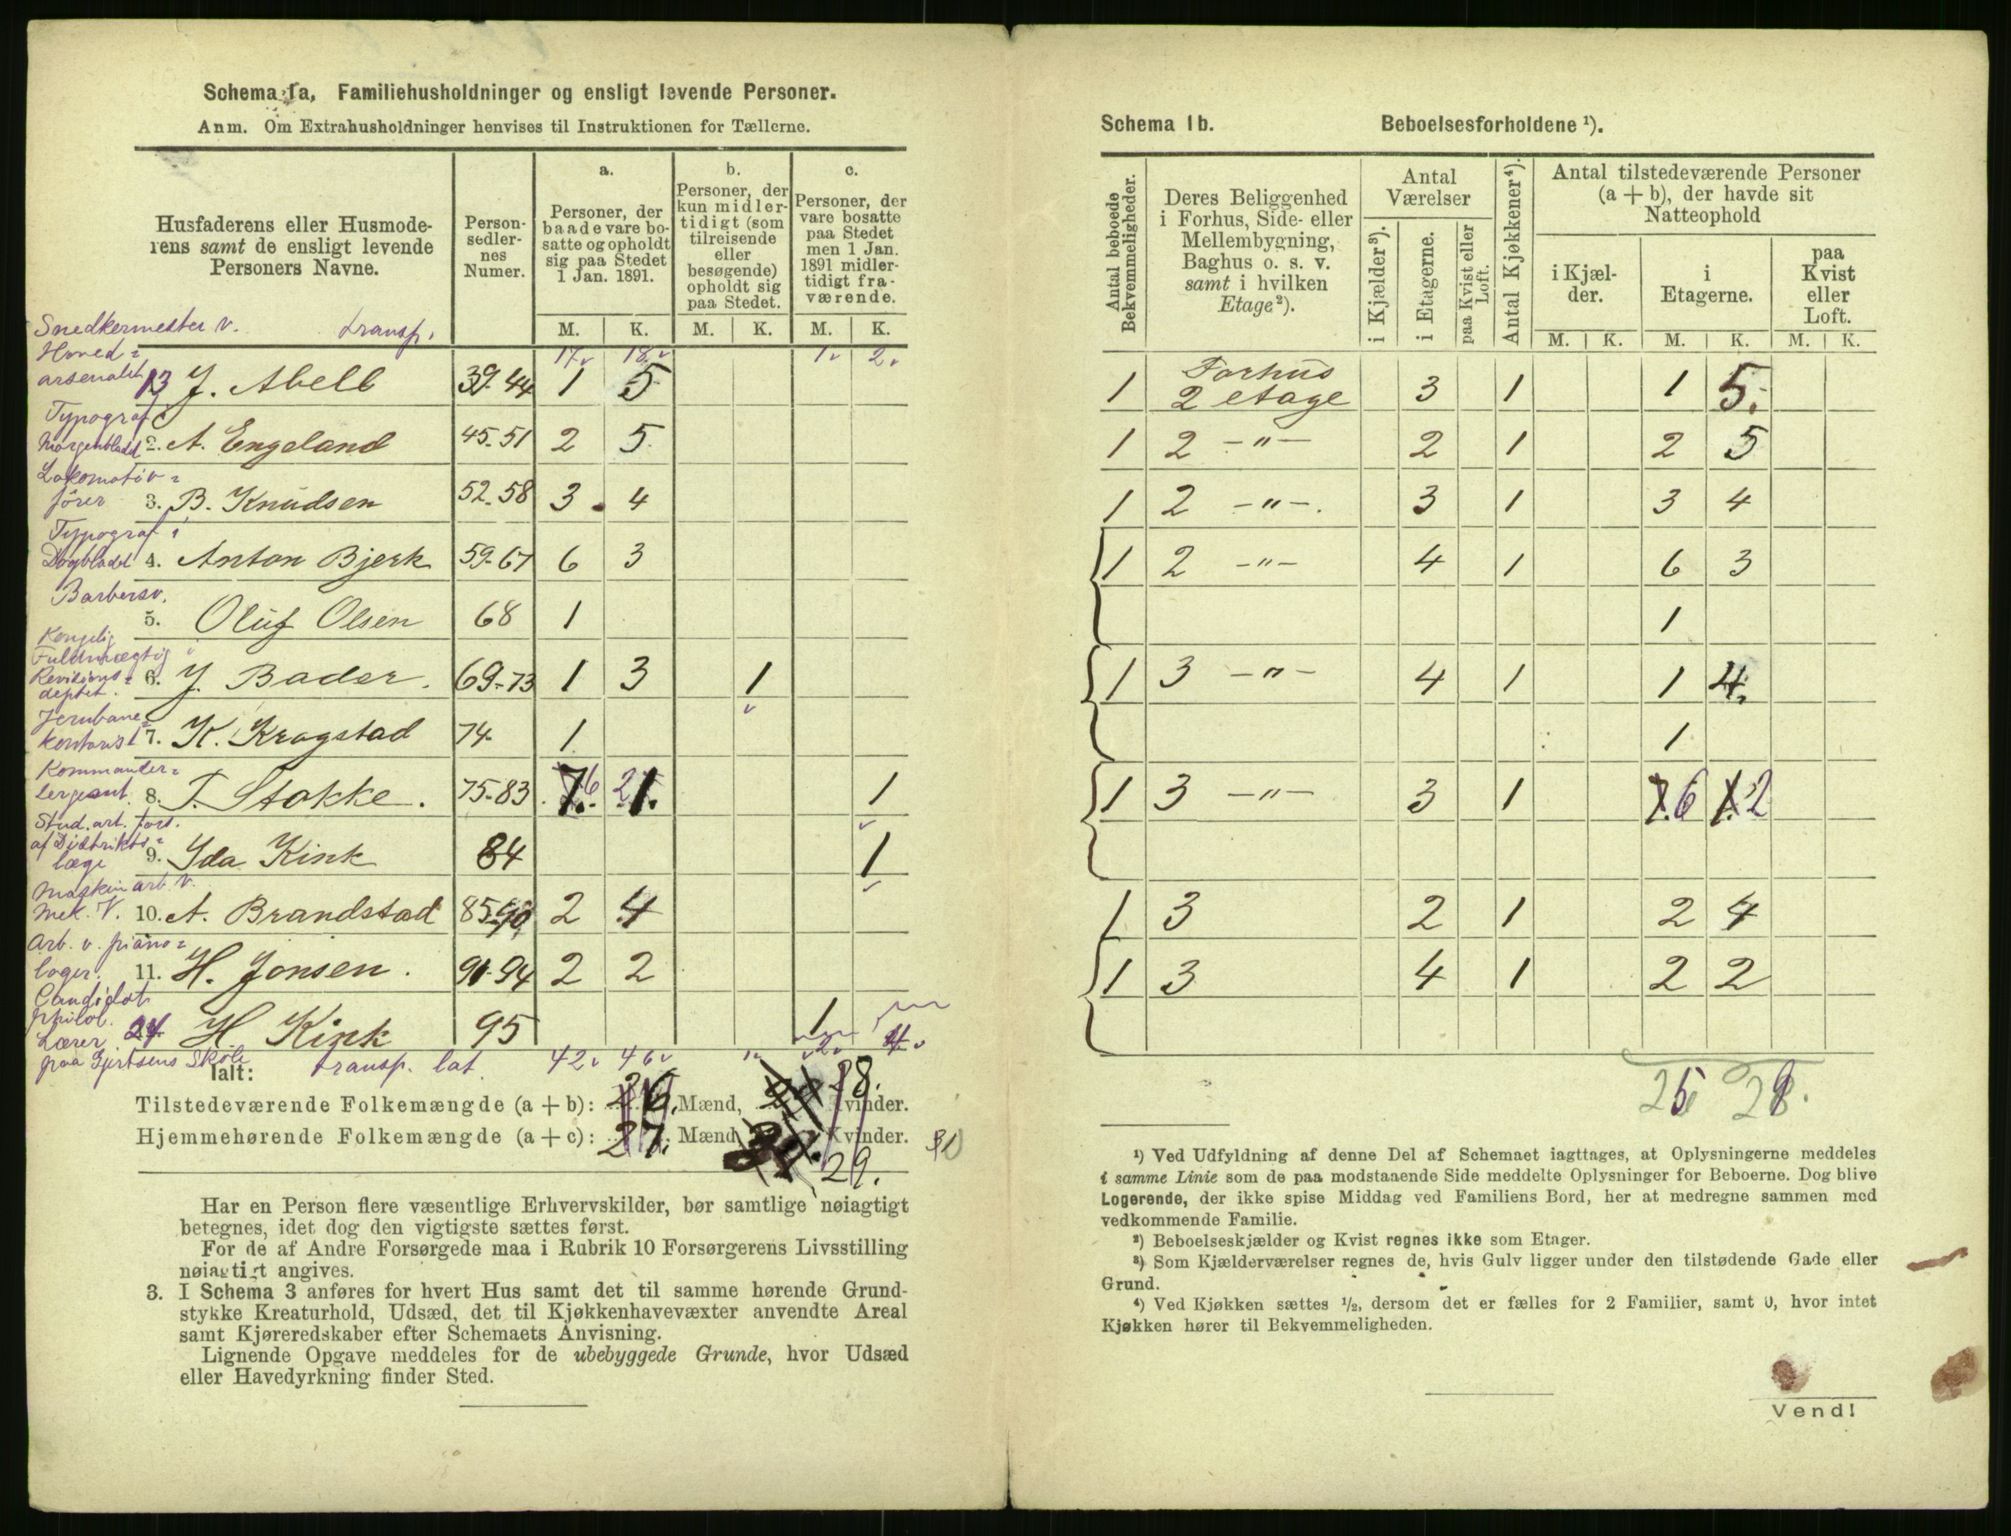 Schema 1a, Familiehusholdninger og ensligt levende Personer.
Anm. Om Extrahusholdninger henvises til Instruktionen for Tællerne.
Husfaderens eller Husmoderens samt de ensligt levende Personers Navne.
Personsedlernes Numer.
a.
Personer, der baade vare bosatte og opholdt sig paa Stedet 1 Jan. 1891.
b.
Personer, der kun midlertidigt (som tilreisende eller besøgende) opholdt sig paa Stedet.
c.
Personer, der vare bosatte paa Stedet men 1 Jan. 1891 midlertidigt fraværende.
M. K. M. K. M. K.
Snedkermester v. transp. 17 18 1 2
Hoved=
arsenalet 13 J. Abell 39-44 1 5
Typograf
Morgenbladet 2. A. Engeland 45-51 2 5
Lokomotiv=
fører 3. B. Knudsen 52-58 3 4
Typograf i
Dagbladet 4. Anton Bjerk 59-67 6 3
Barbersv.
5. Oluf Olsen 68 1
Kongelig
Fuldmægtig i
Revisions=
deptet. 6. J. Bader. 69-73 1 3 1
Jernbane=
kontorist 7. K. Kragstad 74- 1
Kommander=
sergeant. 8. T. Stokke. 75-83 7. 6 2 1. 1
Stud. art. fors.
af Distrikts=
læge 9. Ida Kink 84 1
Maskinarb. v.
Mek. V. 10. A. Brandstad 85-90 2 4
Arb. v. piano=
lager. 11. H. Jonsen. 91-94 2 2
Candidat
philol. 24 H. Kink 95 1
Lærer
paa Gjertsens Skole
Ialt: transp. lat. 42 46 1 2 4
Tilstedeværende Folkemængde (a + b): 26. Mænd, 28. Kvinder.
Hjemmehørende Folkemængde (a + c): 27. Mænd Kvinder.
29.
Har en Person flere væsentlige Erhvervskilder, bør samtlige nøiagtigt
betegnes, idet dog den vigtigste sættes først.
For de af Andre Forsørgede maa i Rubrik 10 Forsørgerens Livsstilling
nøiagtigt angives.
3. I Schema 3 anføres for hvert Hus samt det til samme hørende Grund-
stykke Kreaturhold, Udsæd, det til Kjøkkenhavevæxter anvendte Areal
samt Kjøreredskaber efter Schemaets Anvisning.
Lignende Opgave meddeles for de ubebyggede Grunde, hvor Udsæd
eller Havedyrkning finder Sted.
Schema 1b. Beboelsesforholdene ¹).
Antal beboede Bekvemmeligheder.
Deres Beliggenhed i Forhus, Side- eller Mellembygning, Baghus o. s. v. samt i hvilken Etage²).
Antal Værelser
i Kjælder³).
i Etagerne.
paa Kvist eller Loft.
Antal Kjøkkener⁴).
Antal tilstedeværende Personer (a + b), der havde sit Natteophold
i Kjælder.
i Etagerne.
paa Kvist eller Loft.
M. K. M. K. M. K.
1 Forhus
2 etage 3 1 1 5.
1 2 -"- 2 1 2 5
1 2 -"-. 3 1 3 4
1 2 -"- 4 1 6 3
1
1 3 -"- 4 1 1 4.
1
1 3 -"- 3 1 7. 6 1. 2
1 3 2 1 2 4
1 3 4 1 2 2
¹) Ved Udfyldning af denne Del af Schemaet iagttages, at Oplysningerne meddeles
i samme Linie som de paa modstaaende Side meddelte Oplysninger for Beboerne. Dog blive
Logerende, der ikke spise Middag ved Familiens Bord, her at medregne sammen med
vedkommende Familie.
²) Beboelseskjælder og Kvist regnes ikke som Etager.
³) Som Kjælderværelser regnes de, hvis Gulv ligger under den tilstødende Gade eller
Grund.
⁴) Ved Kjøkken sættes ½, dersom det er fælles for 2 Familier, samt 0, hvor intet
Kjøkken hører til Bekvemmeligheden.
Vend!